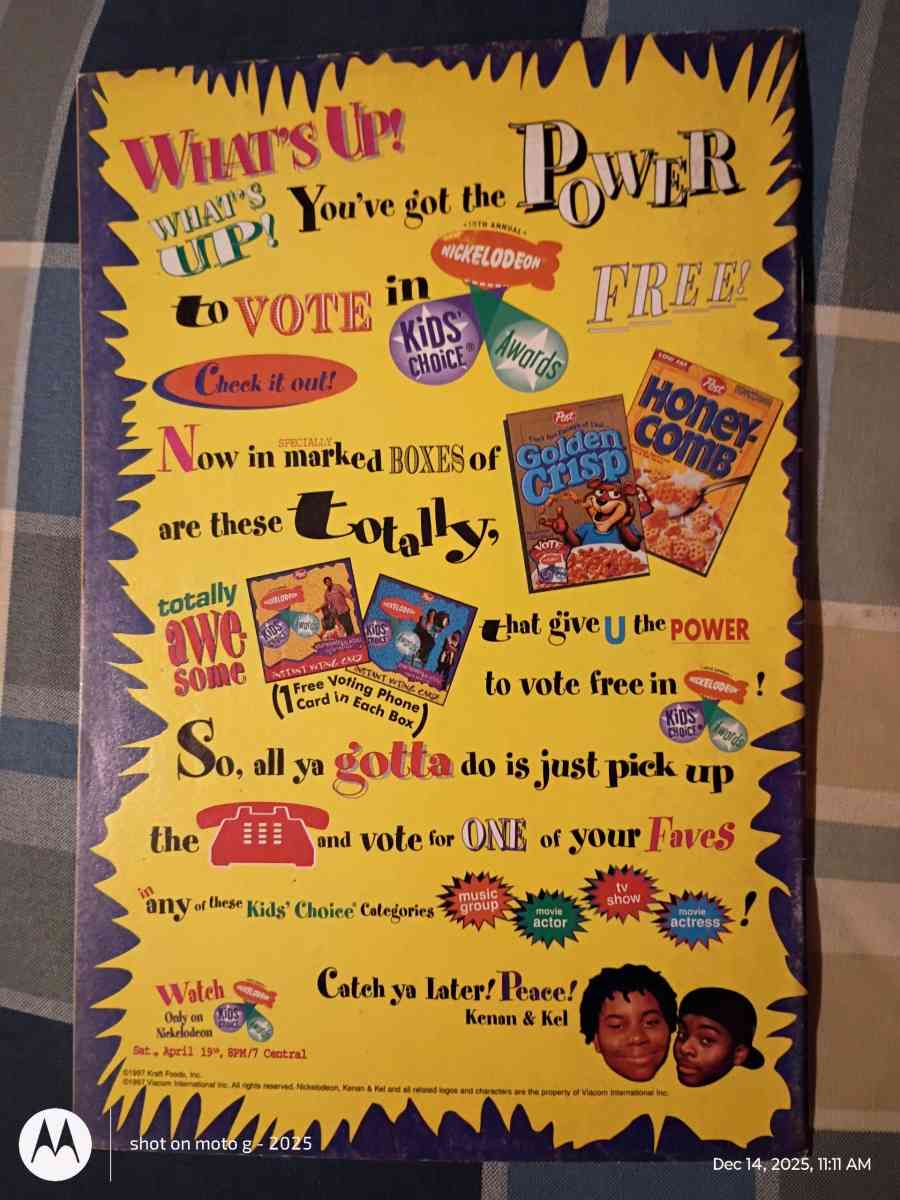 WHAT'S UP!
WHAT'S UP! You've got the POWER
to VOTE in 10TH ANNUAL NICKELODEON KiDS' CHOICE® Awards FREE!
Check it out!
LOW FAT Post HONEY-COMB
Post Golden Crisp
VOTE
Now in SPECIALLY marked BOXES of
are these totally,
totally awe-some
Post NICKELODEON KiDS' CHOICE Awards INSTANT VOTING CARD
Post NICKELODEON KiDS' CHOICE Awards INSTANT VOTING CARD
(1 Free Voting Phone Card in Each Box)
that give U the POWER
to vote free in NICKELODEON KiDS' CHOICE® Awards !
So, all ya gotta do is just pick up
the and vote for ONE of your Faves
in any of these Kids' Choice® Categories music group movie actor tv show movie actress !
Watch NICKELODEON KiDS' CHOICE Awards
Only on Nickelodeon
Sat., April 19th, 8PM/7 Central
Catch ya Later! Peace!
Kenan & Kel
©1997 Kraft Foods, Inc.
©1997 Viacom International Inc. All rights reserved. Nickelodeon, Kenan & Kel and all related logos and characters are the property of Viacom International Inc.
shot on moto g - 2025
Dec 14, 2025, 11:11 AM